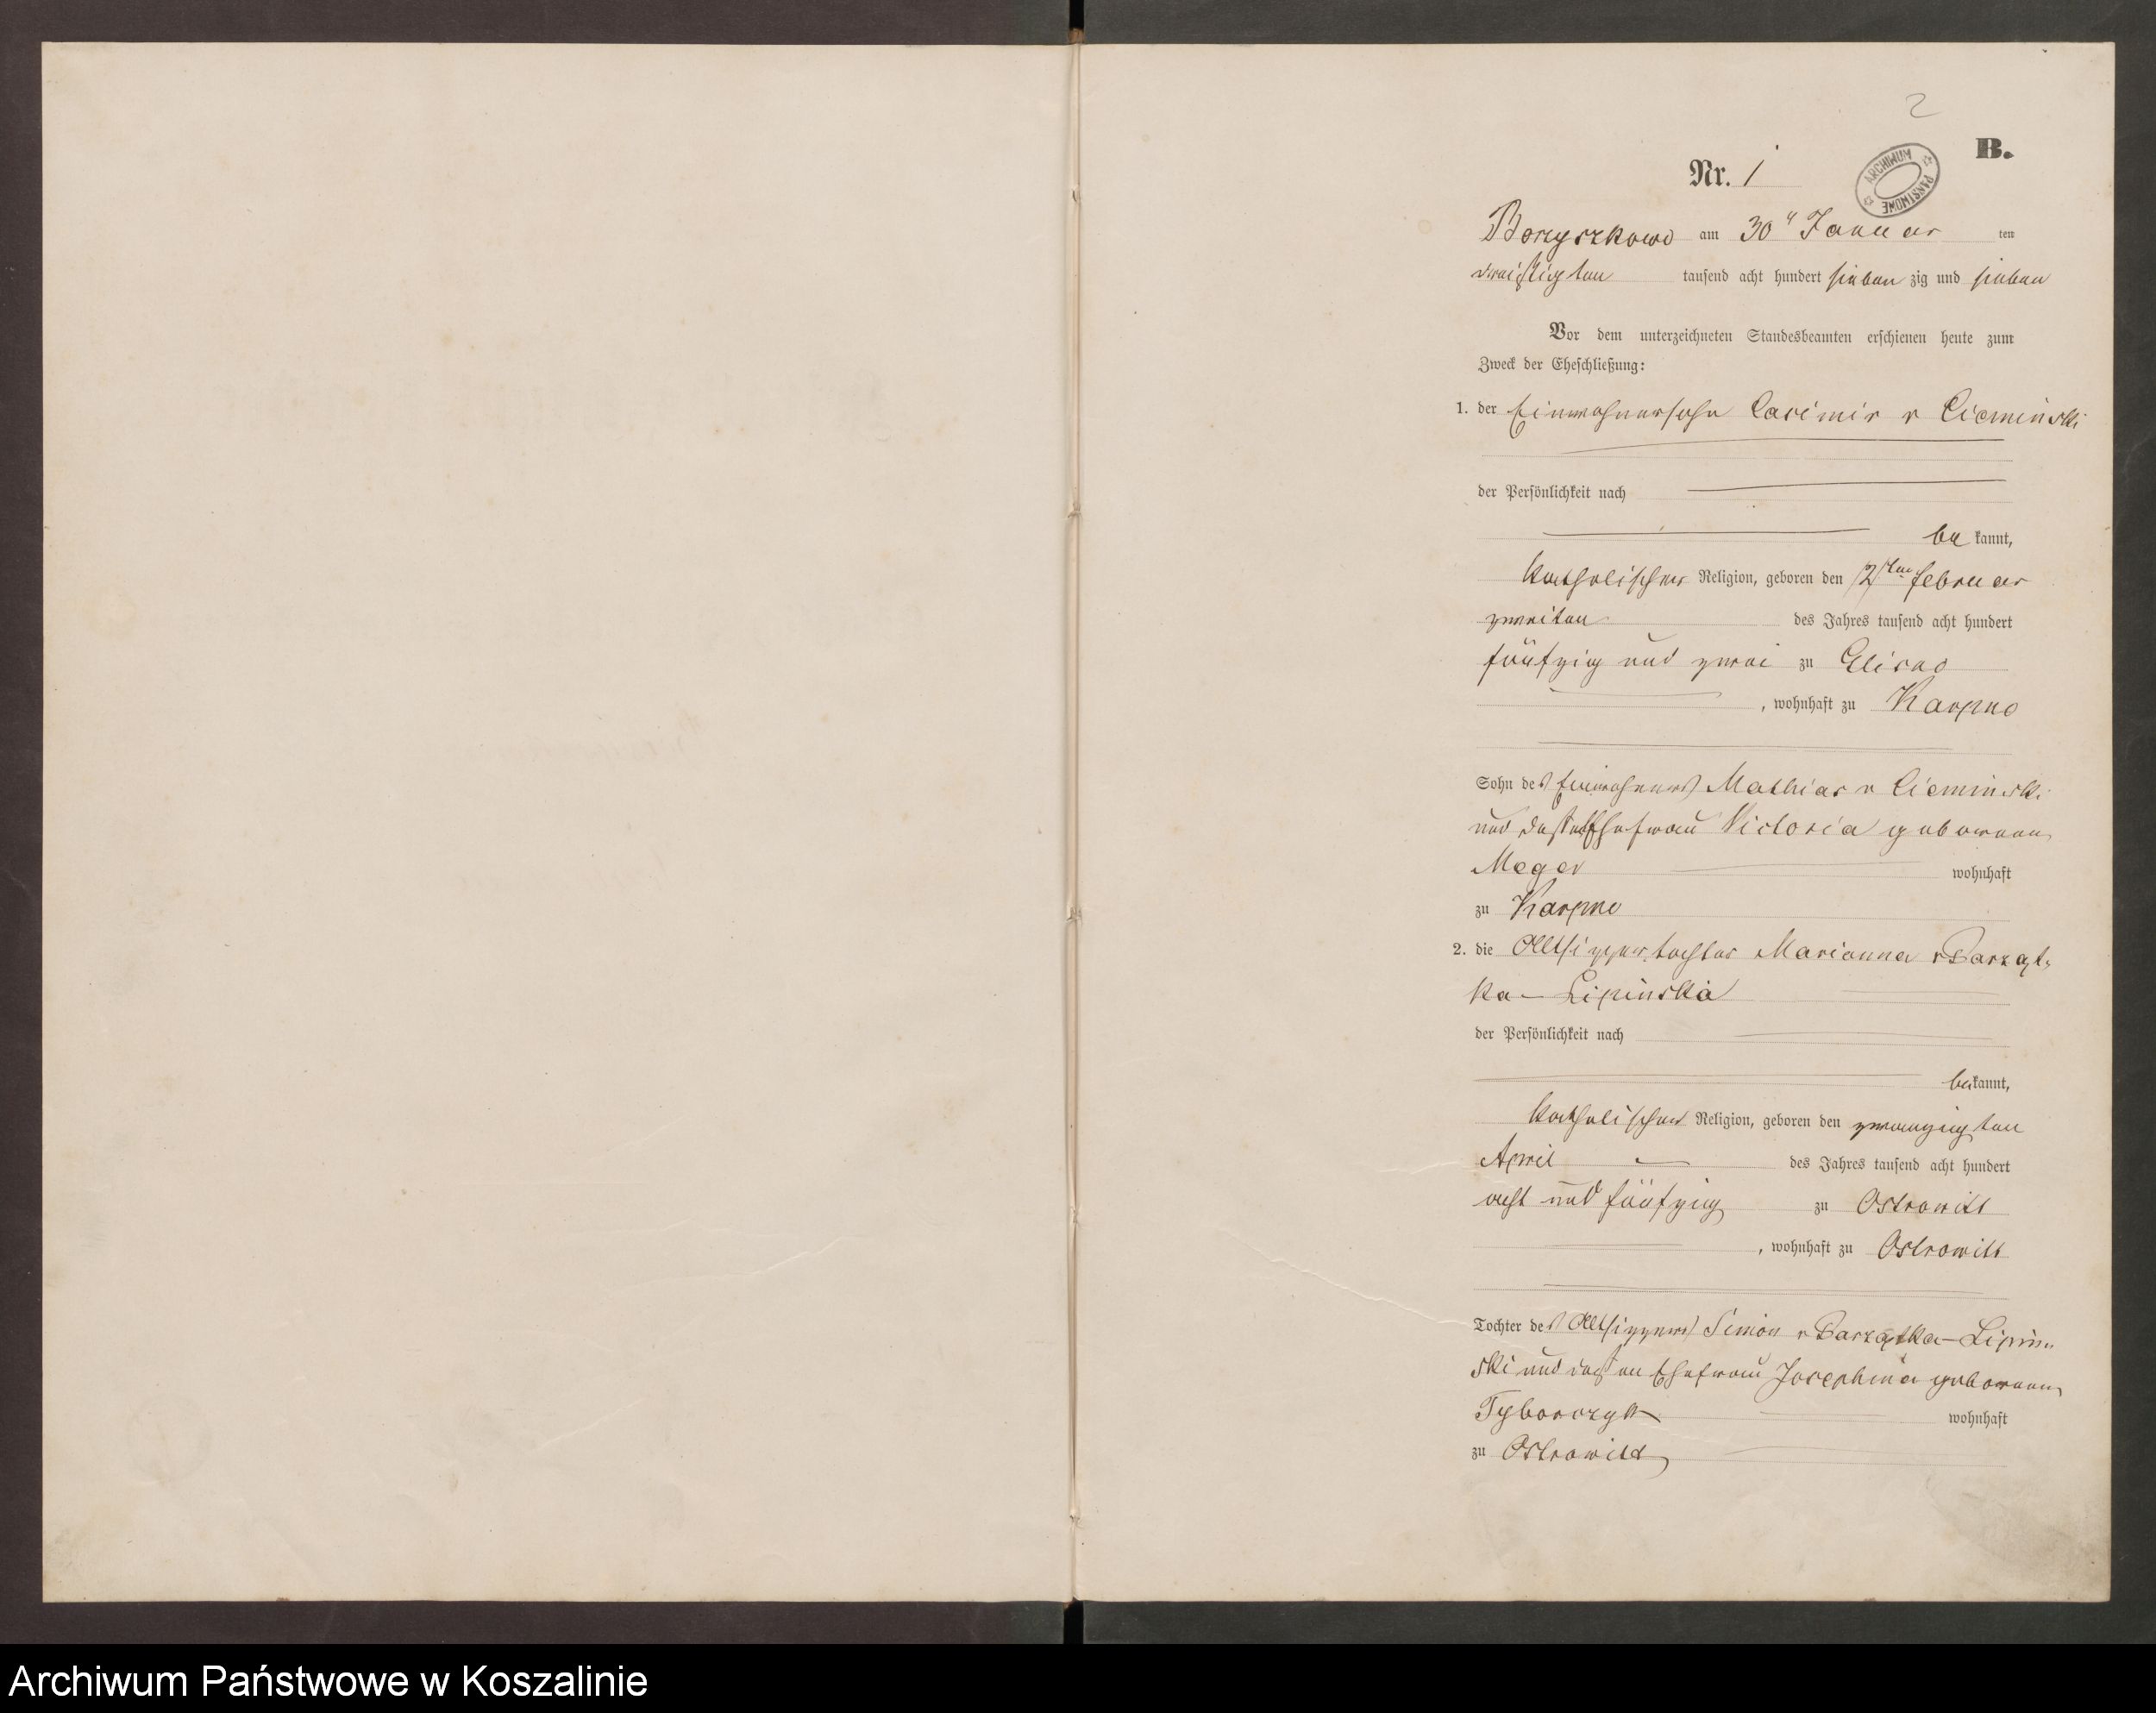 2
B.
Nr. 1
ARCHIWUM PAŃSTWOWE
Borzyszkowo am 30" Januar ten
dreißigten tausend acht hundert sieben zig und sieben
Vor dem unterzeichneten Standesbeamten erschienen heute zum
Zweck der Eheschließung:
1. der Einwohnersohn Casimir v Cieminski
der Persönlichkeit nach
be kannt,
katholischer Religion, geboren den 2ten Februar
zweiten des Jahres tausend acht hundert
fünfzig und zwei zu Glisno
, wohnhaft zu Karpno
Sohn des Einwohners Mathias v Cieminski
und dessen Ehefrau Victoria geborenen
Meger wohnhaft
zu Karpno
2. die Altsitzertochter Marianna v Barząt-
ka-Lipinska
der Persönlichkeit nach
bekannt,
katholischer Religion, geboren den zwanzigten
April des Jahres tausend acht hundert
acht und fünfzig zu Ostrowitt
, wohnhaft zu Ostrowitt
Tochter des Altsitzers Simon v Barzątka-Lipin-
ski und dessen Ehefrau Josephina geborenen
Tyborczyk wohnhaft
zu Ostrowitt
Archiwum Państwowe w Koszalinie